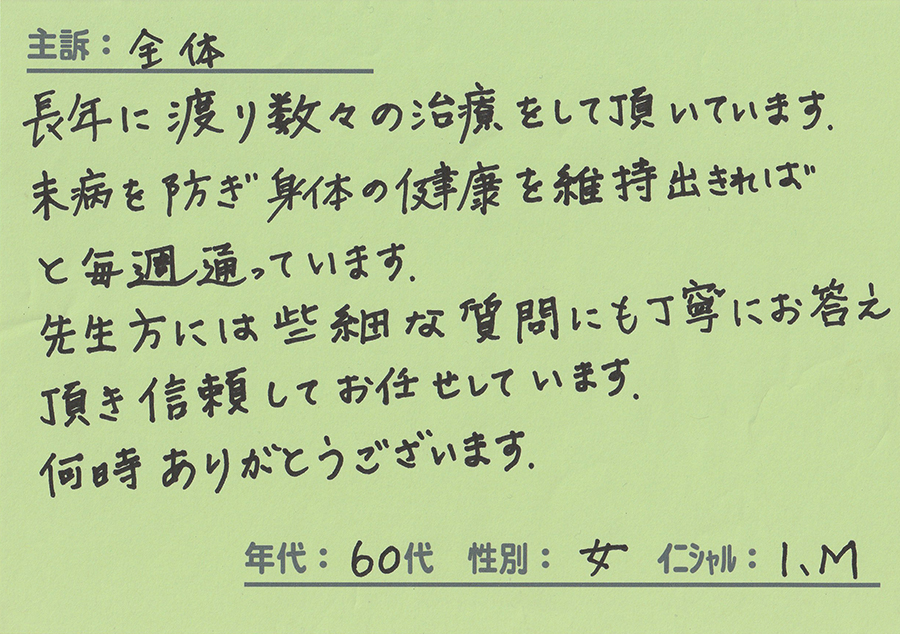 主訴：全体
長年に渡り数々の治療をして頂いています.
未病を防ぎ身体の健康を維持出きれば
と毎週通っています.
先生方には些細な質問にも丁寧にお答え
頂き信頼してお任せしています.
何時ありがとうございます.
年代：60代 性別：女 イニシャル：I、M